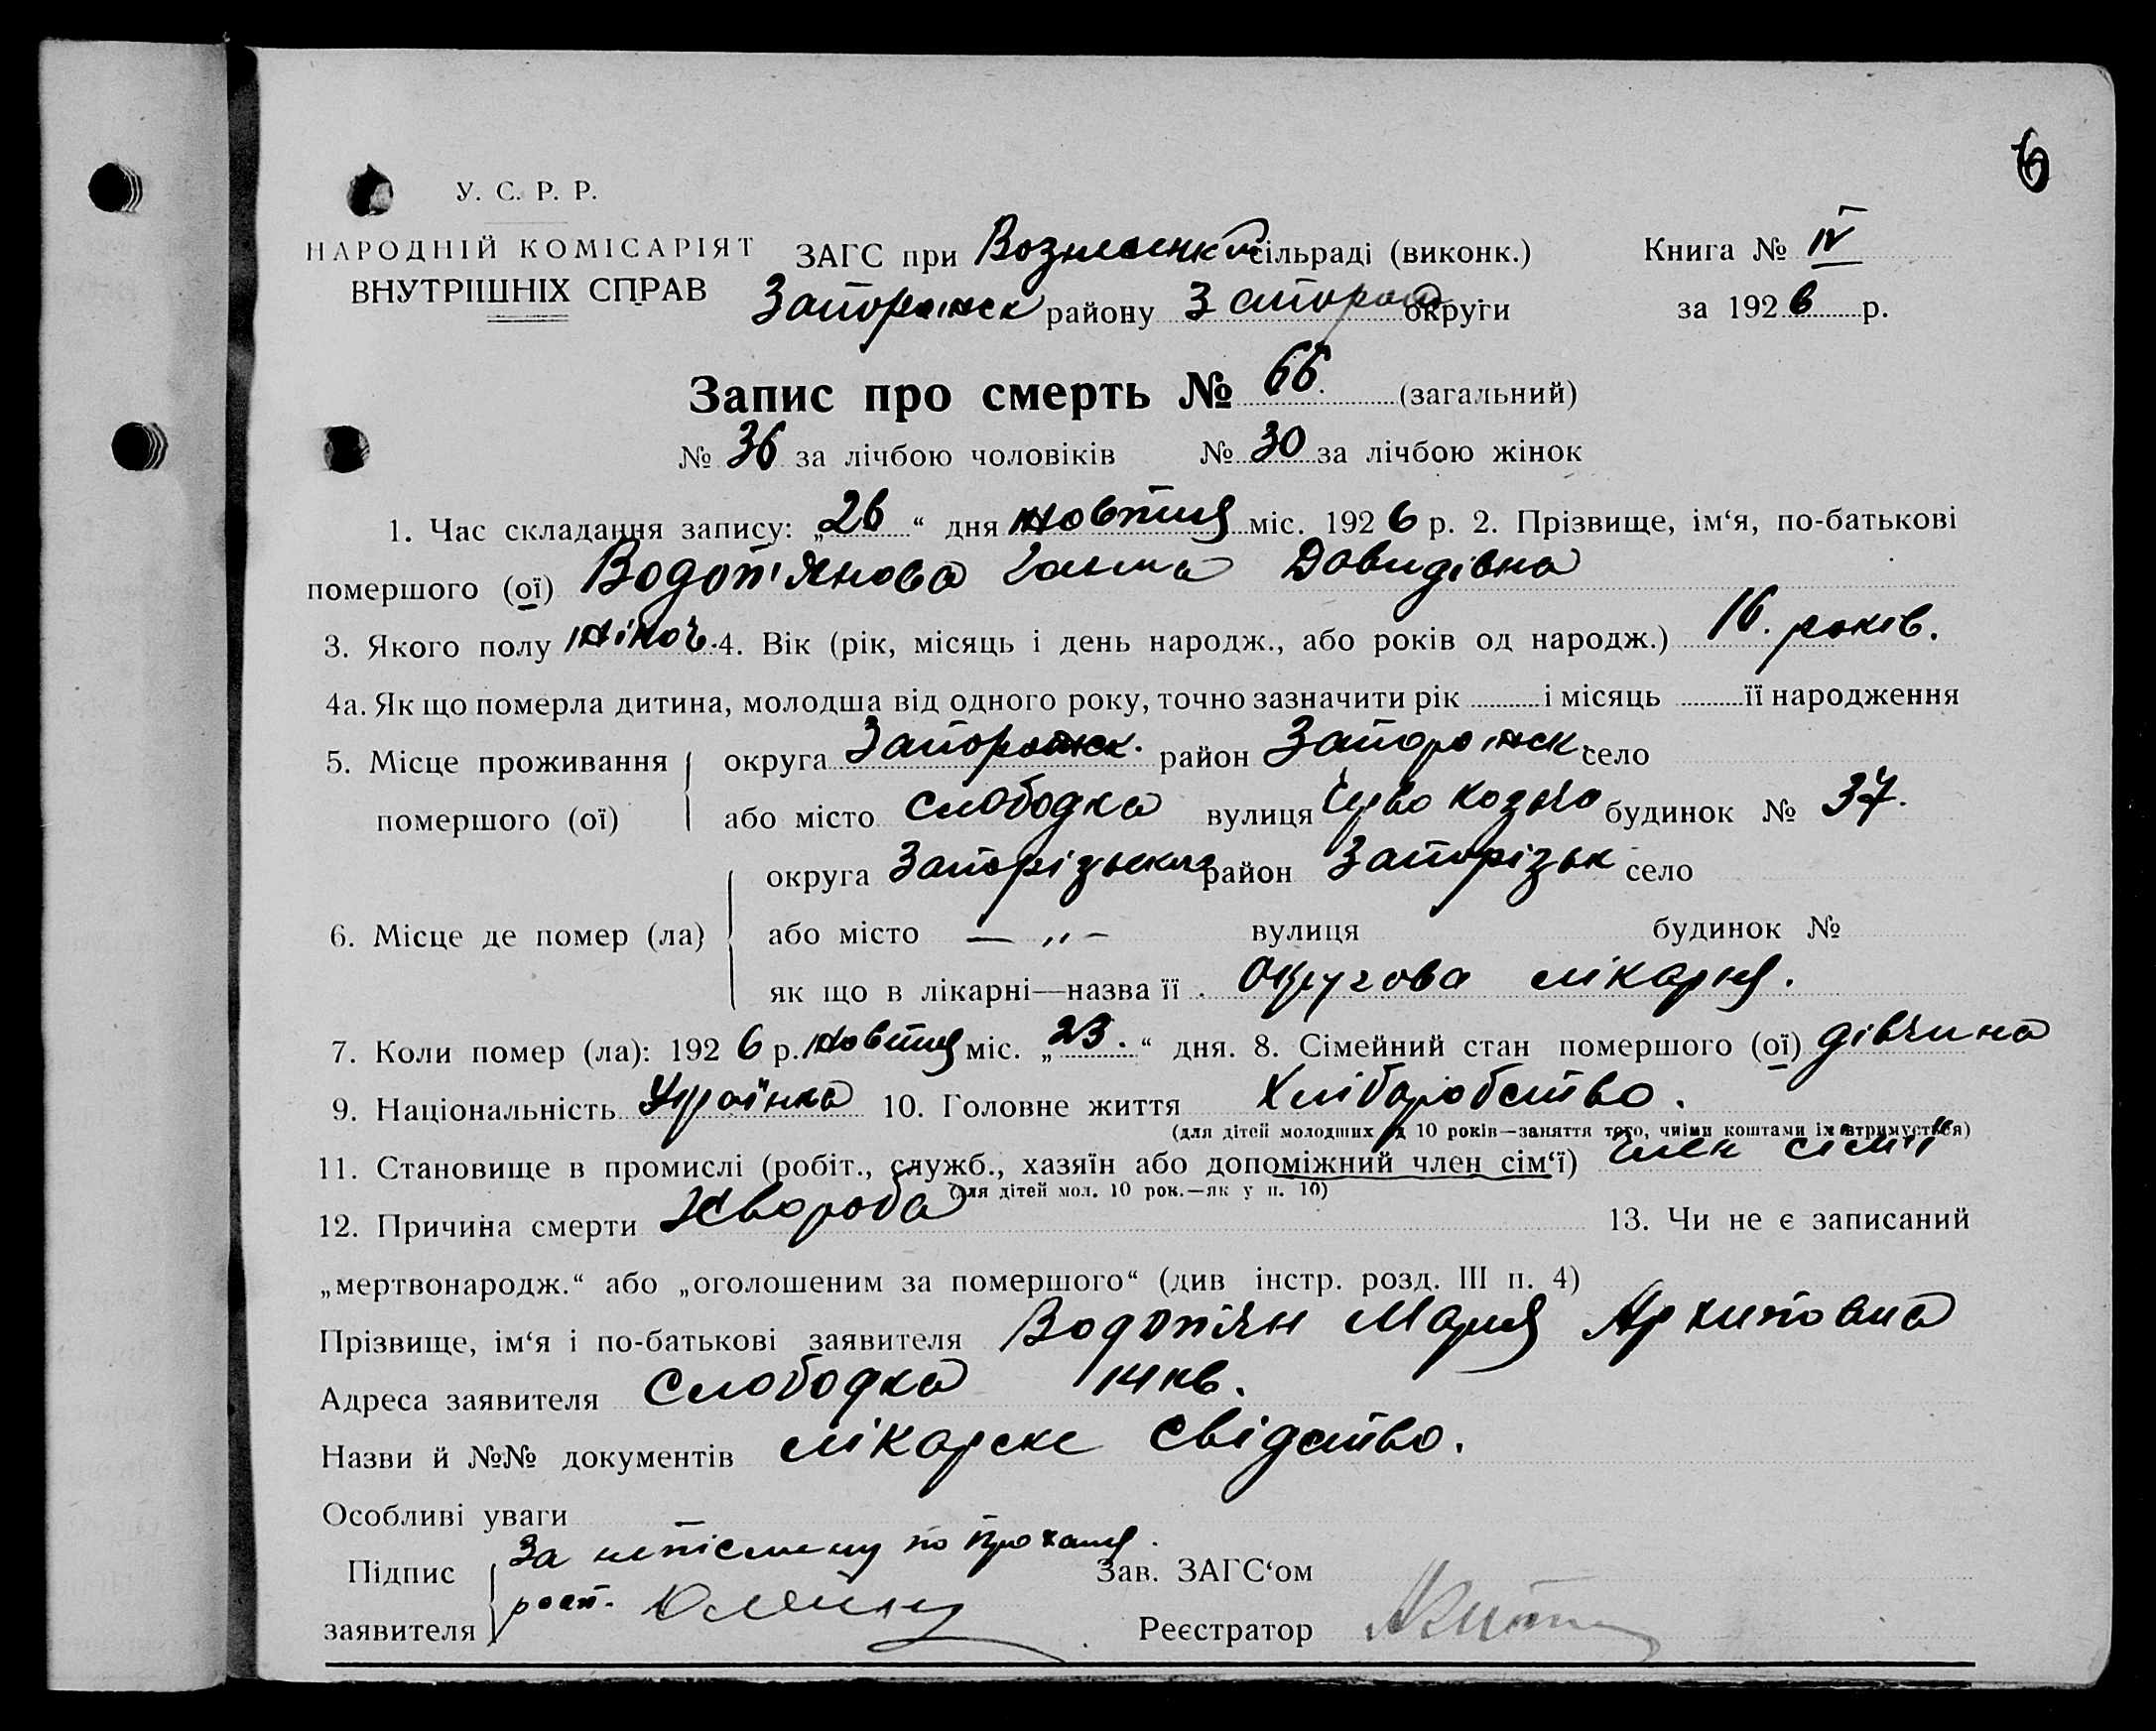 6
У. С. Р. Р.
НАРОДНІЙ КОМІСАРІЯТ
ВНУТРІШНІХ СПРАВ
ЗАГС при Вознесенк сільраді (виконк.)
Книга № IV
Запоріжск району Запоріж округи
за 1926 р.
Запис про смерть № 66. (загальний)
№ 36 за лічбою чоловіків № 30 за лічбою жінок
1. Час складання запису: „26“ дня жовтня міс. 1926 р. 2. Прізвище, ім‘я, по-батькові
помершого (ої) Водоп'янова Ганна Давидівна
3. Якого полу жіноч. 4. Вік (рік, місяць і день народж., або років од народж.) 16. років.
4а. Як що померла дитина, молодша від одного року, точно зазначити рік і місяць її народження
5. Місце проживання помершого (ої)
округа Запорожск. район Запорожск. село
або місто Слободка вулиця будинок № 37.
6. Місце де помер (ла)
округа Запорізька район Запорізьк село
або місто — „ — вулиця будинок №
як що в лікарні—назва її Округова лікарня.
7. Коли помер (ла): 1926 р. жовтня міс. „23.“ дня. 8. Сімейний стан помершого (ої) дівчина
9. Національність Українка 10. Головне життя Хліборобство.
(для дітей молодших од 10 років—заняття того, чиїми коштами їх утримується)
11. Становище в промислі (робіт., служб., хазяїн або допоміжний член сім‘ї) член сім'ї
(для дітей мол. 10 рок.—як у п. 10)
12. Причина смерти Хвороба 13. Чи не є записаний
„мертвонародж.“ або „оголошеним за помершого“ (див інстр. розд. III п. 4)
Прізвище, ім‘я і по-батькові заявителя Водоп'ян Мария Архиповна
Адреса заявителя Слободка 14 кв.
Назви й №№ документів лікарске свідство.
Особливі уваги
Підпис заявителя
За непісмену по проханя.
росп.
Зав. ЗАГС‘ом
Реєстратор